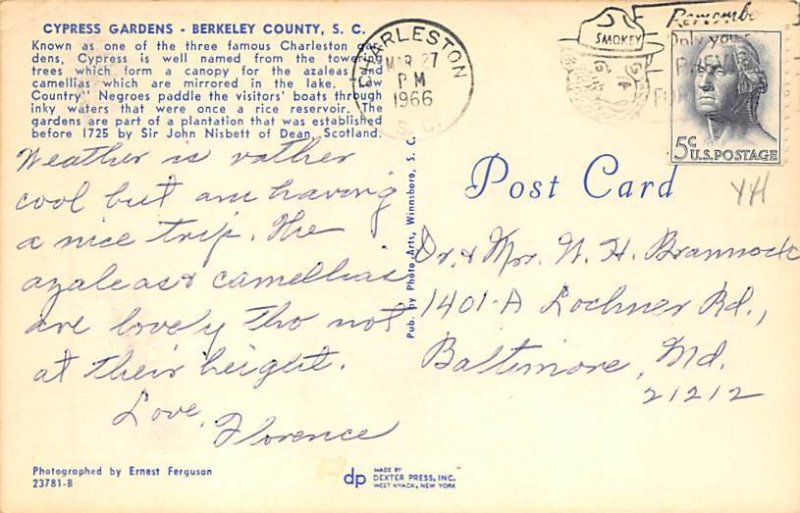 CYPRESS GARDENS - BERKELEY COUNTY, S. C.
Known as one of the three famous Charleston gar-
dens, Cypress is well named from the towering
trees which form a canopy for the azaleas and
camellias which are mirrored in the lake. "Low
Country" Negroes paddle the visitors' boats through
inky waters that were once a rice reservoir. The
gardens are part of a plantation that was established
before 1725 by Sir John Nisbett of Dean, Scotland.
CHARLESTON
MAR 27
PM
1966
S. C.
SMOKEY
Remember
Only you
PREV
FOR
5c U.S. POSTAGE
Weather is rather
cool but am having
a nice trip. The
azaleas & camellias
are lovely tho not
at their height.
Love,
Florence
Pub. by Photo Arts, Winnsboro, S. C.
Post Card
YH
Dr. & Mrs. N. H. Brannock
1401-A Lochner Rd.,
Baltimore, Md.
21212
Photographed by Ernest Ferguson
23781-B
dp
MADE BY
DEXTER PRESS, INC.
WEST NYACK, NEW YORK